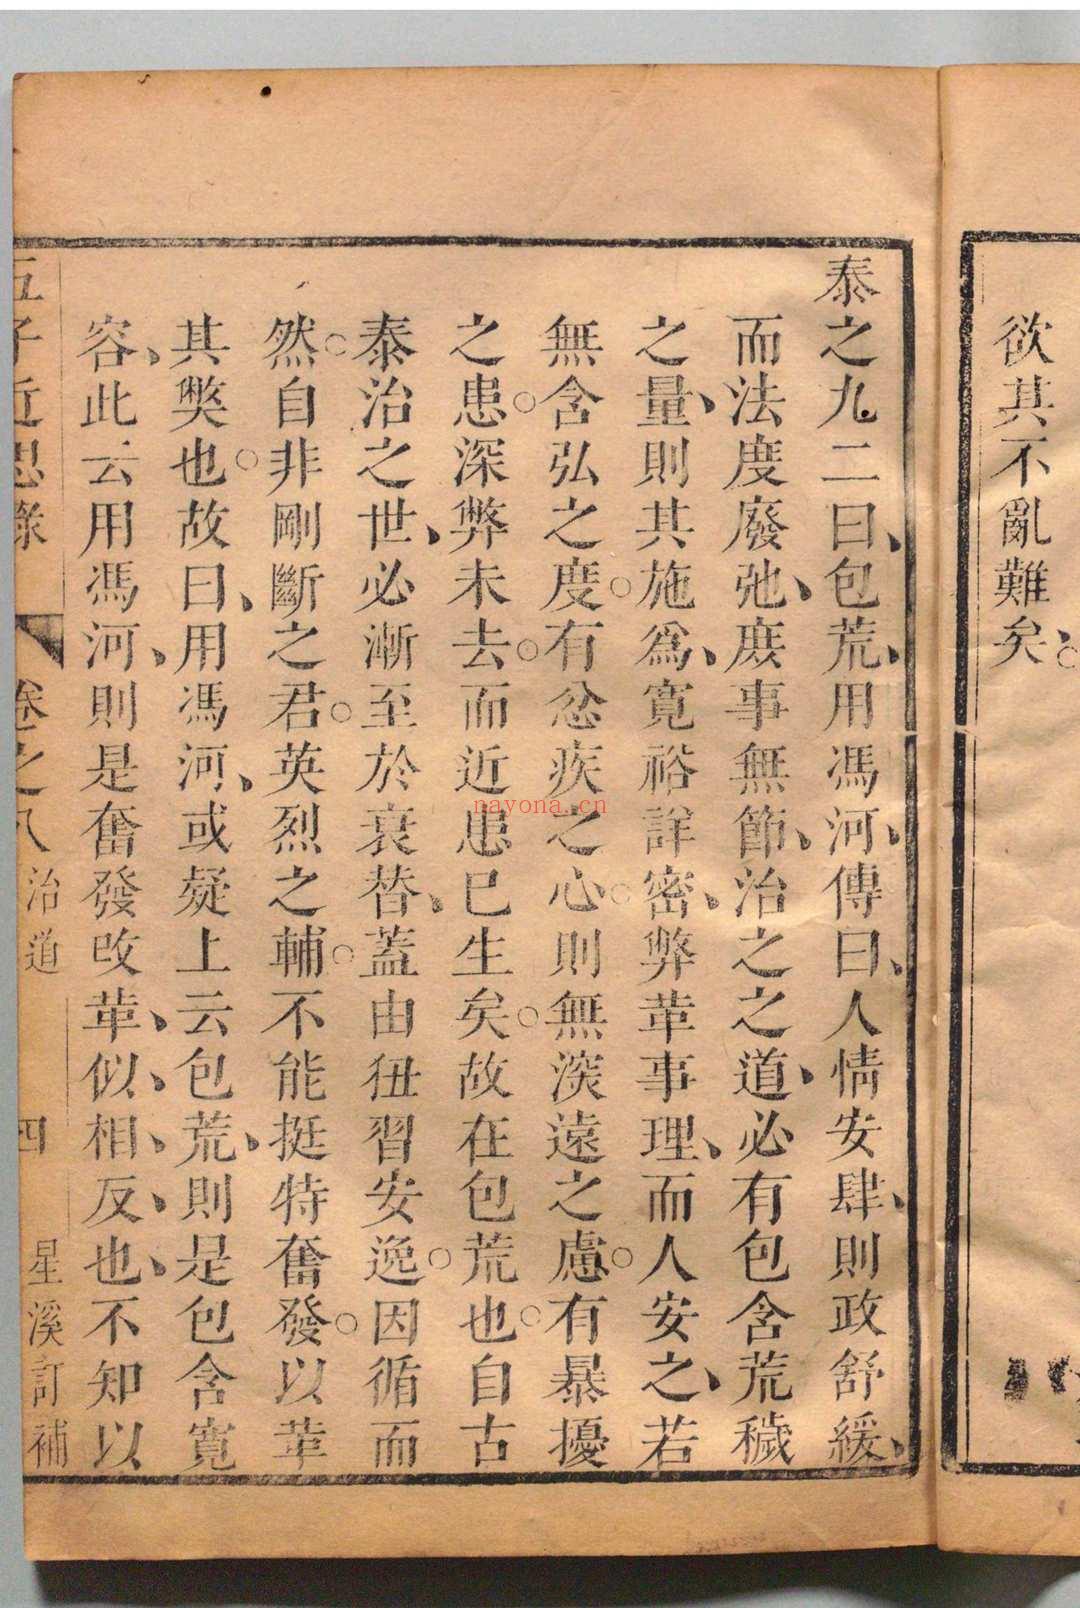 欲其不亂難矣
泰之九二曰包荒用馮河傳曰人情安肆則政舒緩
而法度廢弛庻事無節治之之道必有包含荒穢
之量則其施爲寛裕詳密弊革事理而人安之若
無含弘之度有忿疾之心則無深遠之慮有暴擾
之患深弊未去而近患已生矣故在包荒也自古
泰治之世必漸至於衰替蓋由狃習安逸因循而
然自非剛斷之君英烈之輔不能挺特奮發以革
其獘也故曰用馮河或疑上云包荒則是包含寛
容此云用馮河則是奮發改革似相反也不知以
五子近思錄 卷之八 治道 四 星溪訂補
nayona.cn